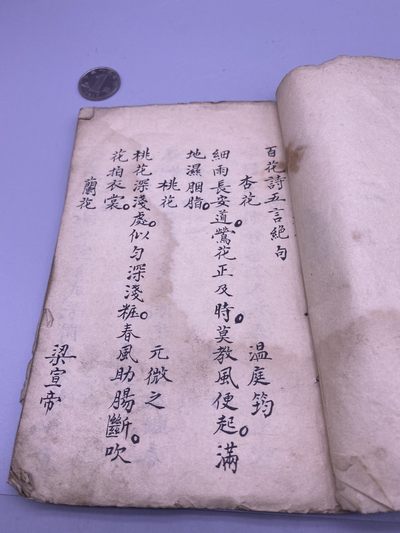 百花詩五言絕句
杏花　溫庭筠
細雨長安道。鶯花正及時。莫教風便起。滿
地濕胭脂。
桃花　元微之
桃花深淺處。似勻深淺粧。春風助腸斷。吹
花拍衣裳。
蘭花　梁宣帝